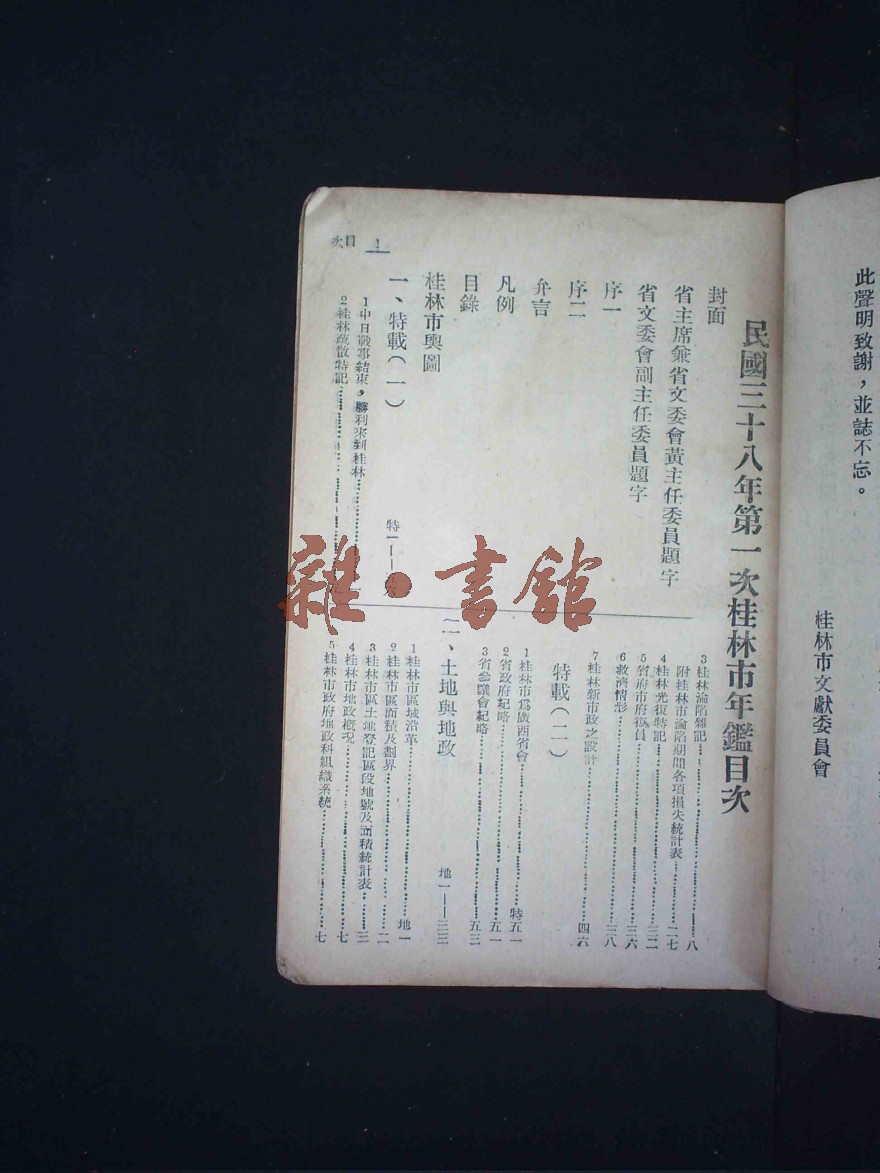 此聲明致謝，並誌不忘。
桂林市文獻委員會
民國三十八年第一次桂林市年鑑目次
封面
省主席兼省文委會黃主任委員題字
省文委會副主任委員題字
序一
序二
弁言
凡例
目錄
桂林市輿圖
一、特載（一）
1 中日戰事結束，勝利來到桂林
2 桂林疏散特記
3 桂林淪陷雜記……八
附桂林市淪陷期間各項損失統計表……二七
4 桂林光復特記……三二
5 省府市府復員……三六
6 救濟情形……三八
7 桂林新市政之設計……四六
特載（二）
1 桂林市爲廣西省會……特五一
2 省政府紀略……五一
3 省參議會紀略……五三
二、土地與地政 地一——三三
1 桂林市區域沿革……地一
2 桂林市區面積及劃界……二
3 桂林市區土地登記區段地號及面積統計表……三
4 桂林市地政概況……七
5 桂林市政府地政科組織系統……七
目次 1
雜·書館